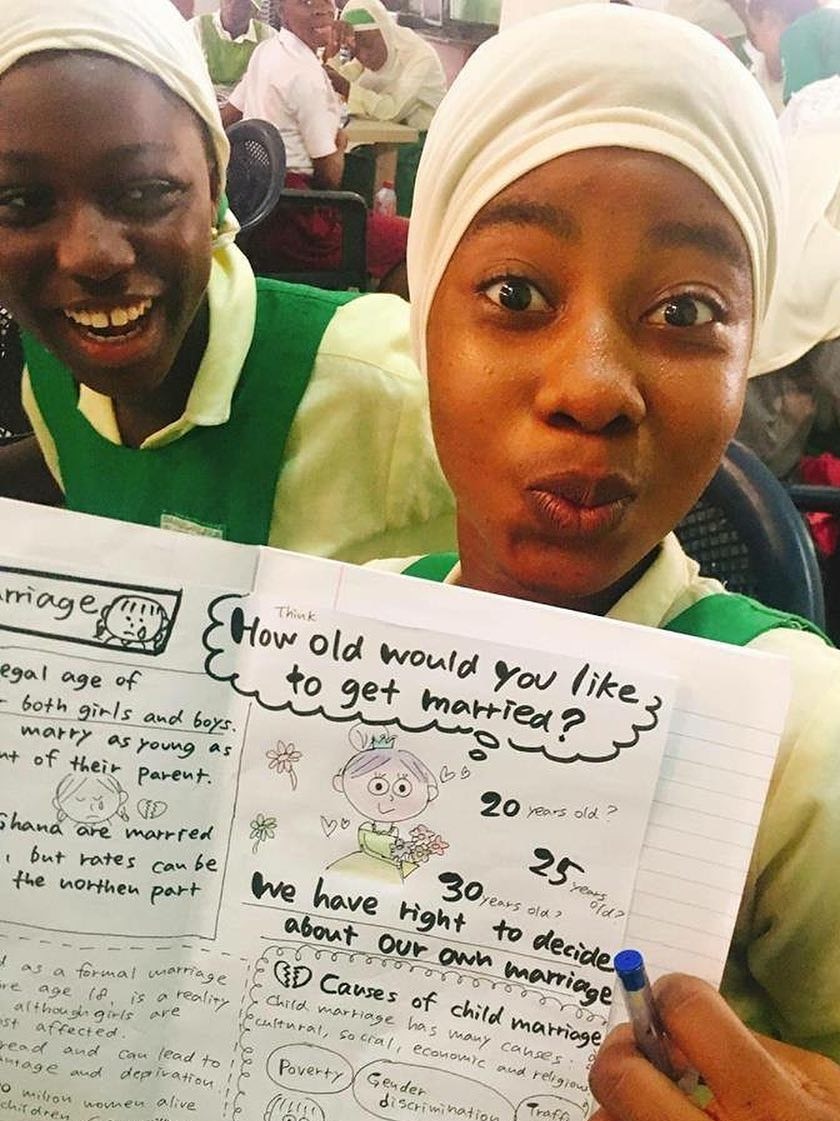 rriage
egal age of
both girls and boys.
marry as young as
nt of their parent.
Ghana are married
, but rates can be
the northen part
d as a formal marriage
re age 18, is a reality
although girls are
st affected.
read and can lead to
ntage and deprivation.
milion women alive
children
Think
How old would you like
to get married?
20 years old?
25 years old?
30 years old?
We have right to decide
about our own marriage
Causes of child marriage
child marriage has many causes:
cultural, social, economic and religious
Poverty
Gender
discrimination
Traff